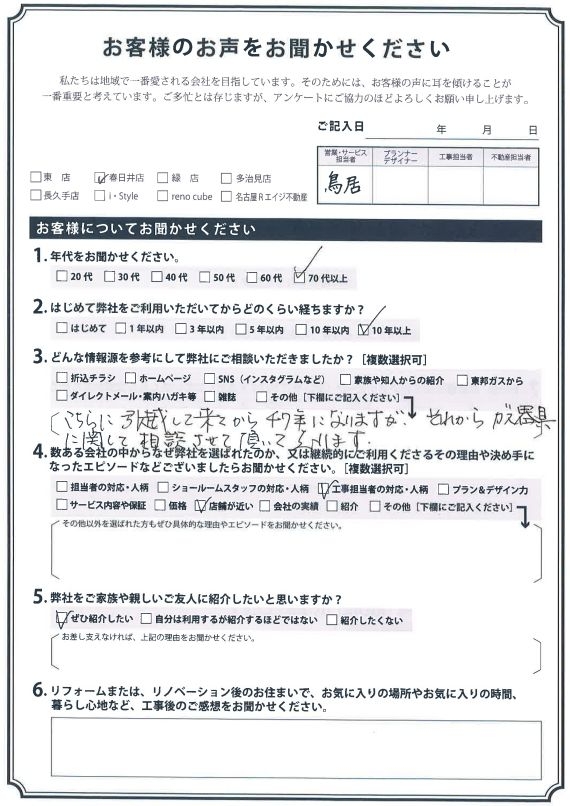 お客様のお声をお聞かせください
私たちは地域で一番愛される会社を目指しています。そのためには、お客様の声に耳を傾けることが
一番重要と考えています。ご多忙とは存じますが、アンケートにご協力のほどよろしくお願い申し上げます。
ご記入日 年 月 日
営業・サービス担当者 プランナーデザイナー 工事担当者 不動産担当者
鳥居
□東 店 ☑春日井店 □緑 店 □多治見店
□長久手店 □i・Style □reno cube □名古屋Rエイジ不動産
お客様についてお聞かせください
1.年代をお聞かせください。
□20代 □30代 □40代 □50代 □60代 ☑70代以上
2.はじめて弊社をご利用いただいてからどのくらい経ちますか?
□はじめて □1年以内 □3年以内 □5年以内 □10年以内 ☑10年以上
3.どんな情報源を参考にして弊社にご相談いただきましたか?[複数選択可]
□折込チラシ □ホームページ □SNS(インスタグラムなど) □家族や知人からの紹介 □東邦ガスから
□ダイレクトメール・案内ハガキ等 □雑誌 □その他[下欄にご記入ください]
こちらに引越して来てから47年になりますが、それからガス器具
に関して相談させて頂いております.
4.数ある会社の中からなぜ弊社を選ばれたのか、又は継続的にご利用くださるその理由や決め手に
なったエピソードなどございましたらお聞かせください。[複数選択可]
□担当者の対応・人柄 □ショールームスタッフの対応・人柄 ☑工事担当者の対応・人柄 □プラン&デザイン力
□サービス内容や保証 □価格 ☑店舗が近い □会社の実績 □紹介 □その他[下欄にご記入ください]
その他以外を選ばれた方もぜひ具体的な理由やエピソードをお聞かせください。
5.弊社をご家族や親しいご友人に紹介したいと思いますか?
☑ぜひ紹介したい □自分は利用するが紹介するほどではない □紹介したくない
お差し支えなければ、上記の理由をお聞かせください。
6.リフォームまたは、リノベーション後のお住まいで、お気に入りの場所やお気に入りの時間、
暮らし心地など、工事後のご感想をお聞かせください。